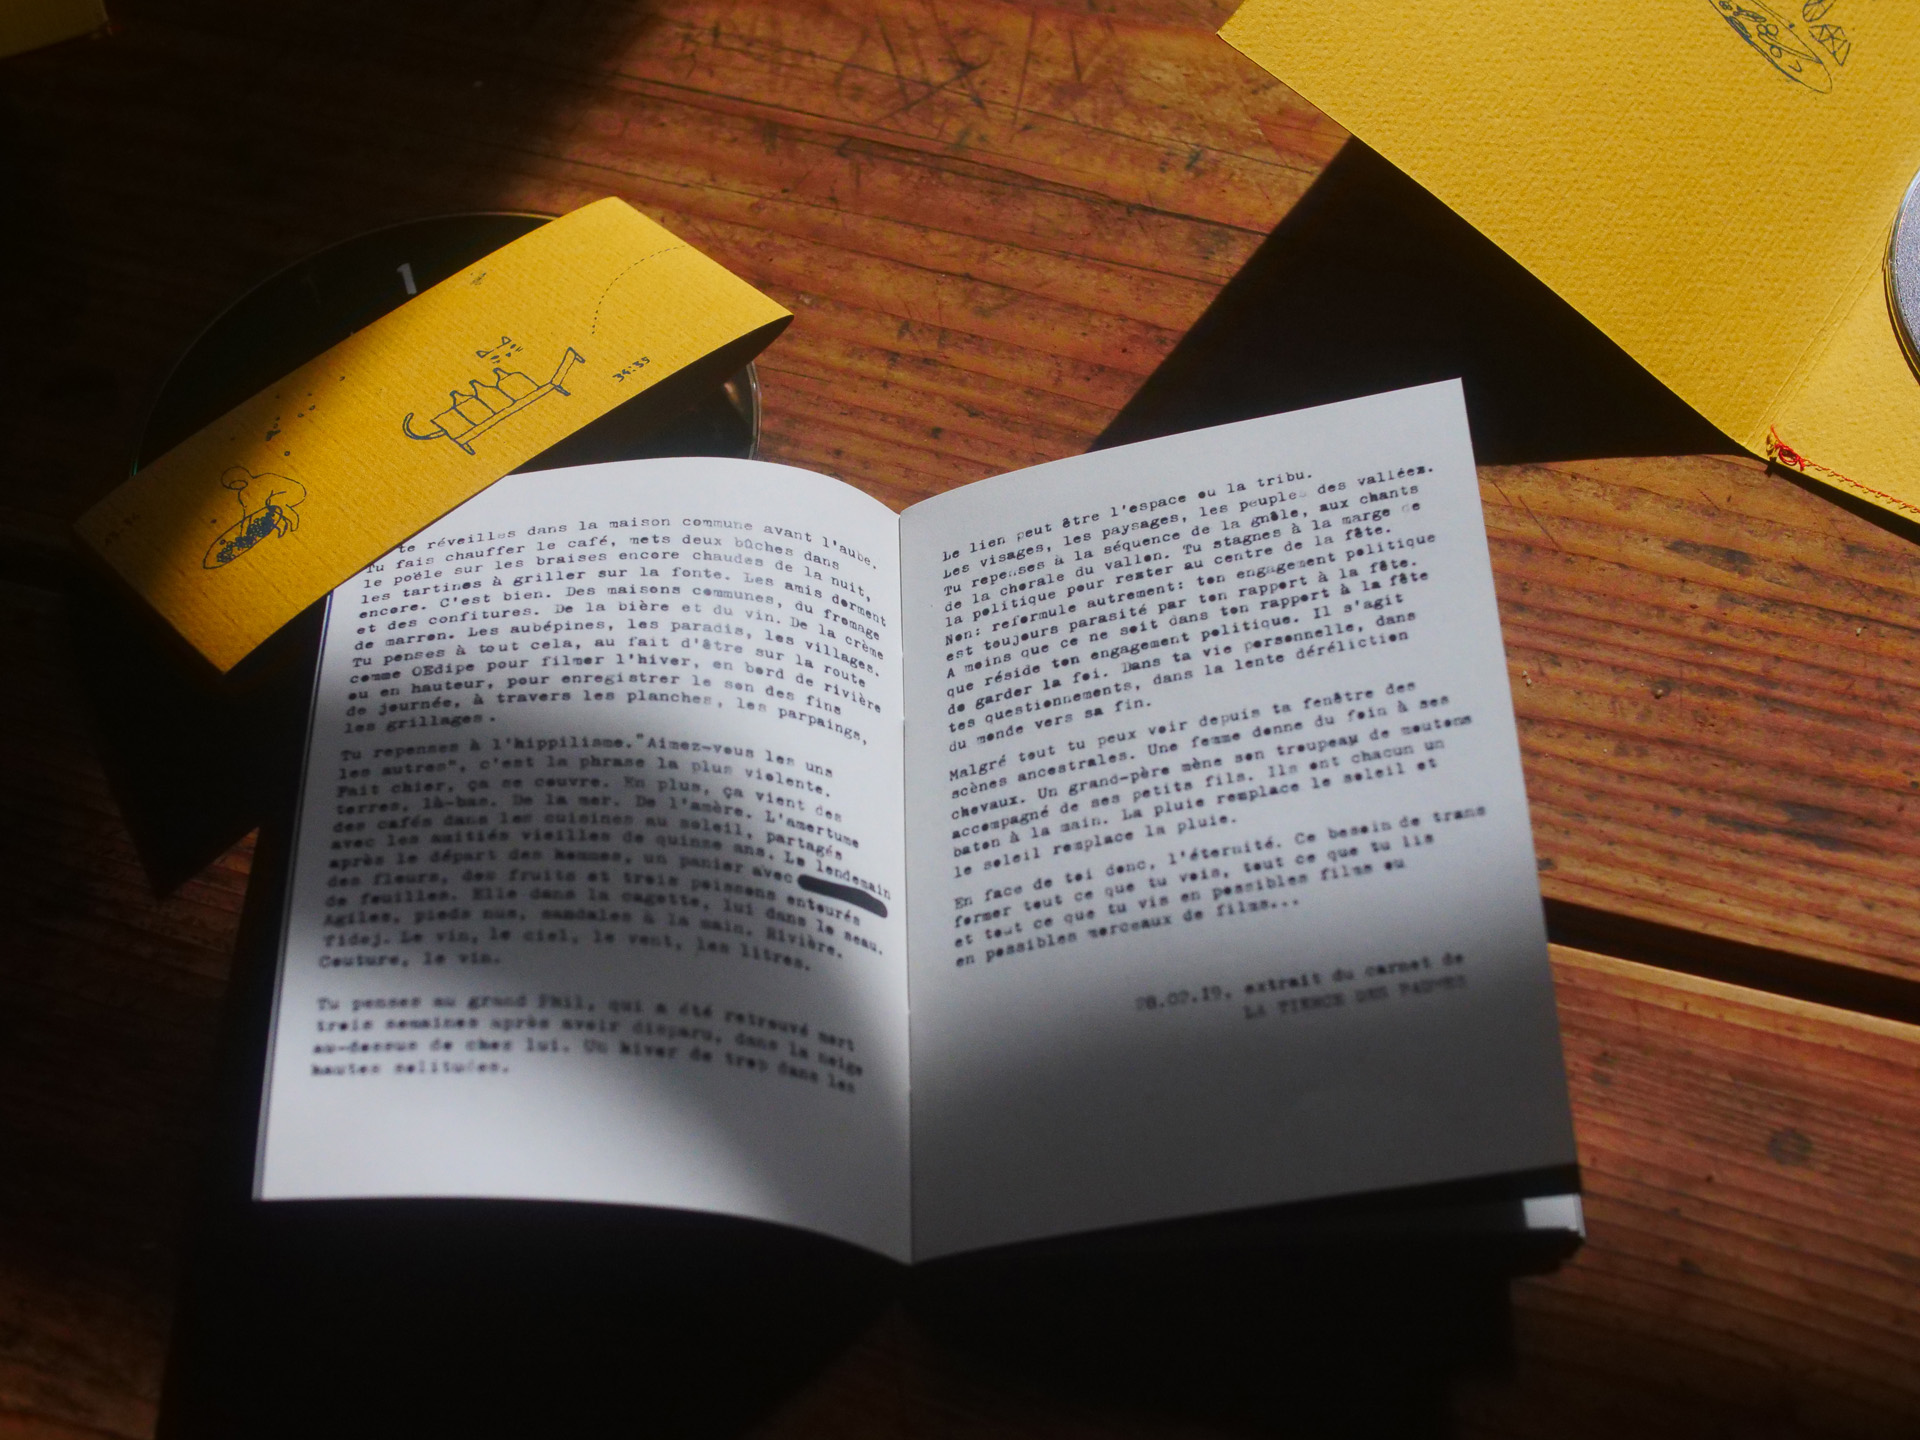 1
34:35
te réveilles dans la maison commune avant l'aube.
Tu fais chauffer le café, mets deux bûches dans
le poêle sur les braises encore chaudes de la nuit,
les tartines à griller sur la fonte. Les amis dorment
encore. C'est bien. Des maisons communes, du fromage
et des confitures. De la bière et du vin. De la crème
de marron. Les aubépines, les paradis, les villages.
Tu penses à tout cela, au fait d'être sur la route
comme OEdipe pour filmer l'hiver, en bord de rivière
ou en hauteur, pour enregistrer le son des fins
de journée, à travers les planches, les parpaings,
les grillages.
Tu repenses à l'hippilisme."Aimez-vous les uns
les autres", c'est la phrase la plus violente.
Fait chier, ça se couvre. En plus, ça vient des
terres, là-bas. De la mer. De l'amère. L'amertume
des cafés dans les cuisines au soleil, partagés
avec les amitiés vieilles de quinze ans. Le lendemain
après le départ des hommes, un panier avec
des fleurs, des fruits et trois poissons entourés
de feuilles. Elle dans la cagette, lui dans le seau.
Agiles, pieds nus, sandales à la main. Rivière.
Tidej. Le vin, le ciel, le vent, les litres.
Couture, le vin.
Tu penses au grand Phil, qui a été retrouvé mort
trois semaines après avoir disparu, dans la neige
au-dessus de chez lui. Un hiver de trop dans les
hautes solitudes.
Le lien peut être l'espace ou la tribu.
Les visages, les paysages, les peuples des vallées.
Tu repenses à la séquence de la gnôle, aux chants
de la chorale du vallon. Tu stagnes à la marge de
la politique pour rester au centre de la fête.
Non: reformule autrement: ton engagement politique
est toujours parasité par ton rapport à la fête.
A moins que ce ne soit dans ton rapport à la fête
que réside ton engagement politique. Il s'agit
de garder la foi. Dans ta vie personnelle, dans
tes questionnements, dans la lente déréliction
du monde vers sa fin.
Malgré tout tu peux voir depuis ta fenêtre des
scènes ancestrales. Une femme donne du foin à ses
chevaux. Un grand-père mène son troupeau de moutons
accompagné de ses petits fils. Ils ont chacun un
baton à la main. La pluie remplace le soleil et
le soleil remplace la pluie.
En face de toi donc, l'éternité. Ce besoin de trans
former tout ce que tu vois, tout ce que tu lis
et tout ce que tu vis en possibles films ou
en possibles morceaux de films...
28.02.19, extrait du carnet de
LA TIERCE DES PAUMES